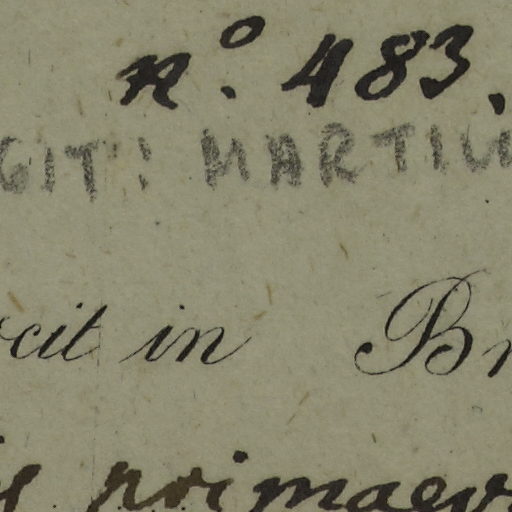 nº. 483.
GIT: MARTIU
cit in Br
is primaev